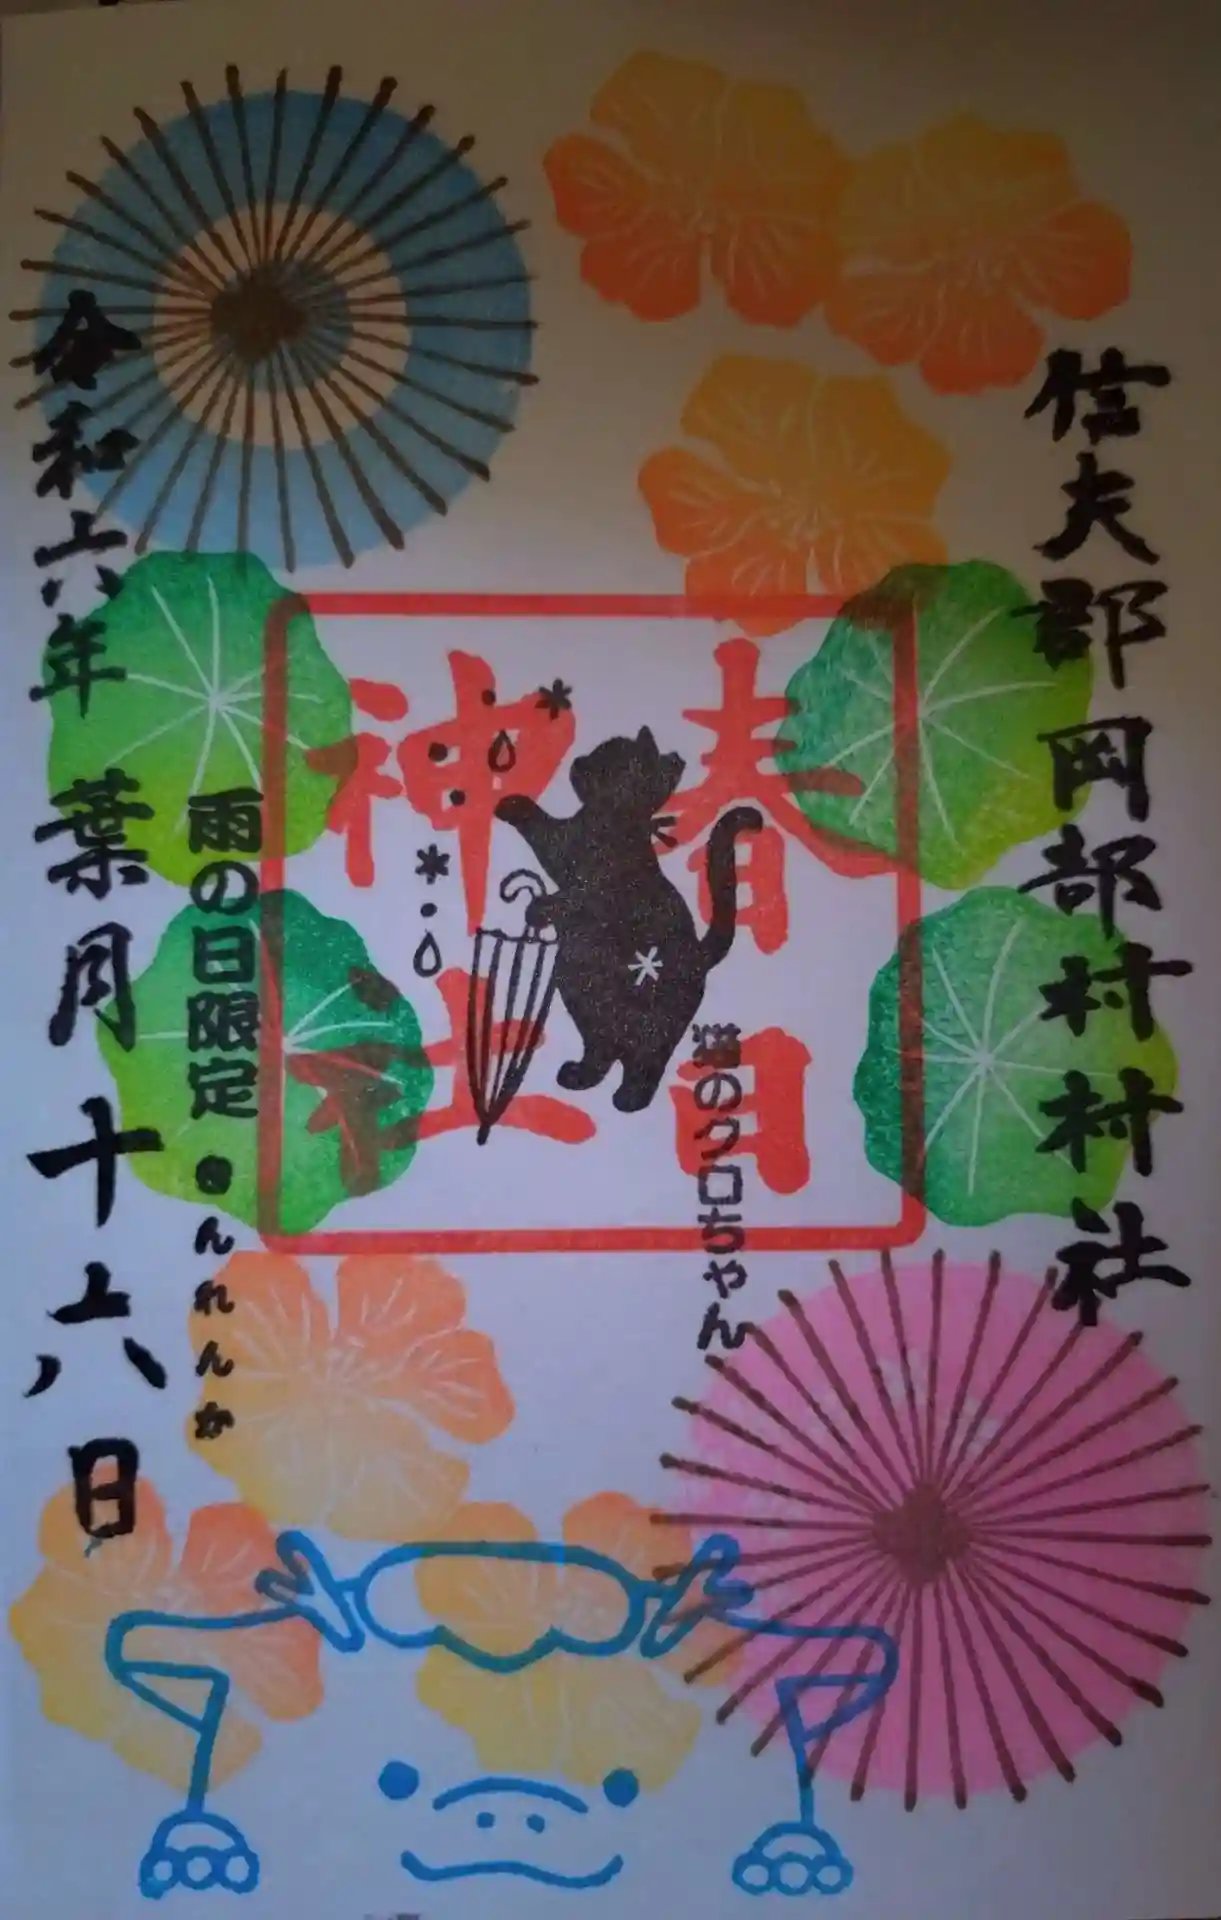 信夫郡岡部村村社
春日
神社
猫のクロちゃん
雨の日限定
きんれんか
令和六年 葉月十六日